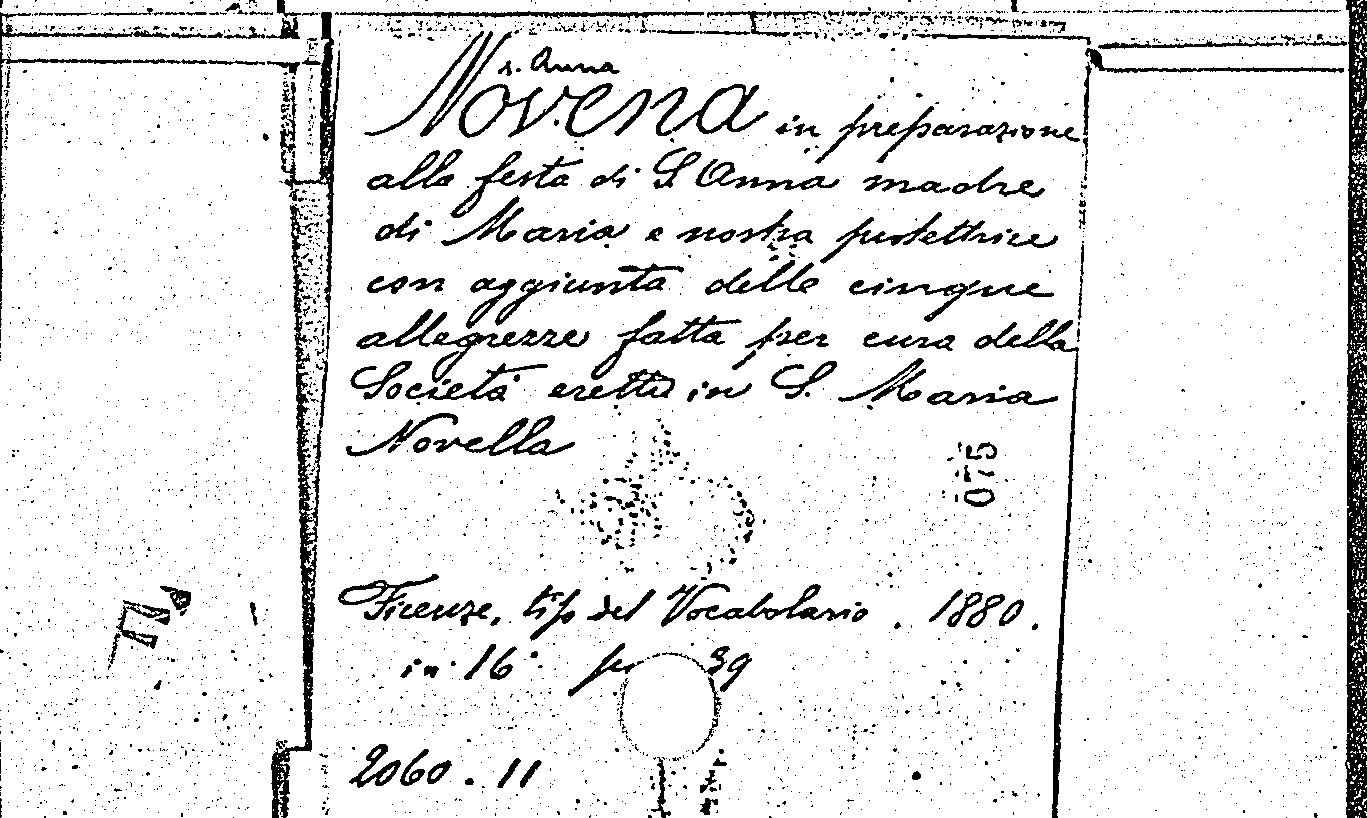 s. Anna
Novena in preparazione
alla festa di S. Anna madre
di Maria e nostra protettrice
con aggiunta delle cinque
allegrezze fatta per cura della
Società eretta in S. Maria
Novella
075
Firenze, tip del Vocabolario. 1880.
in 16° 39
2060. 11